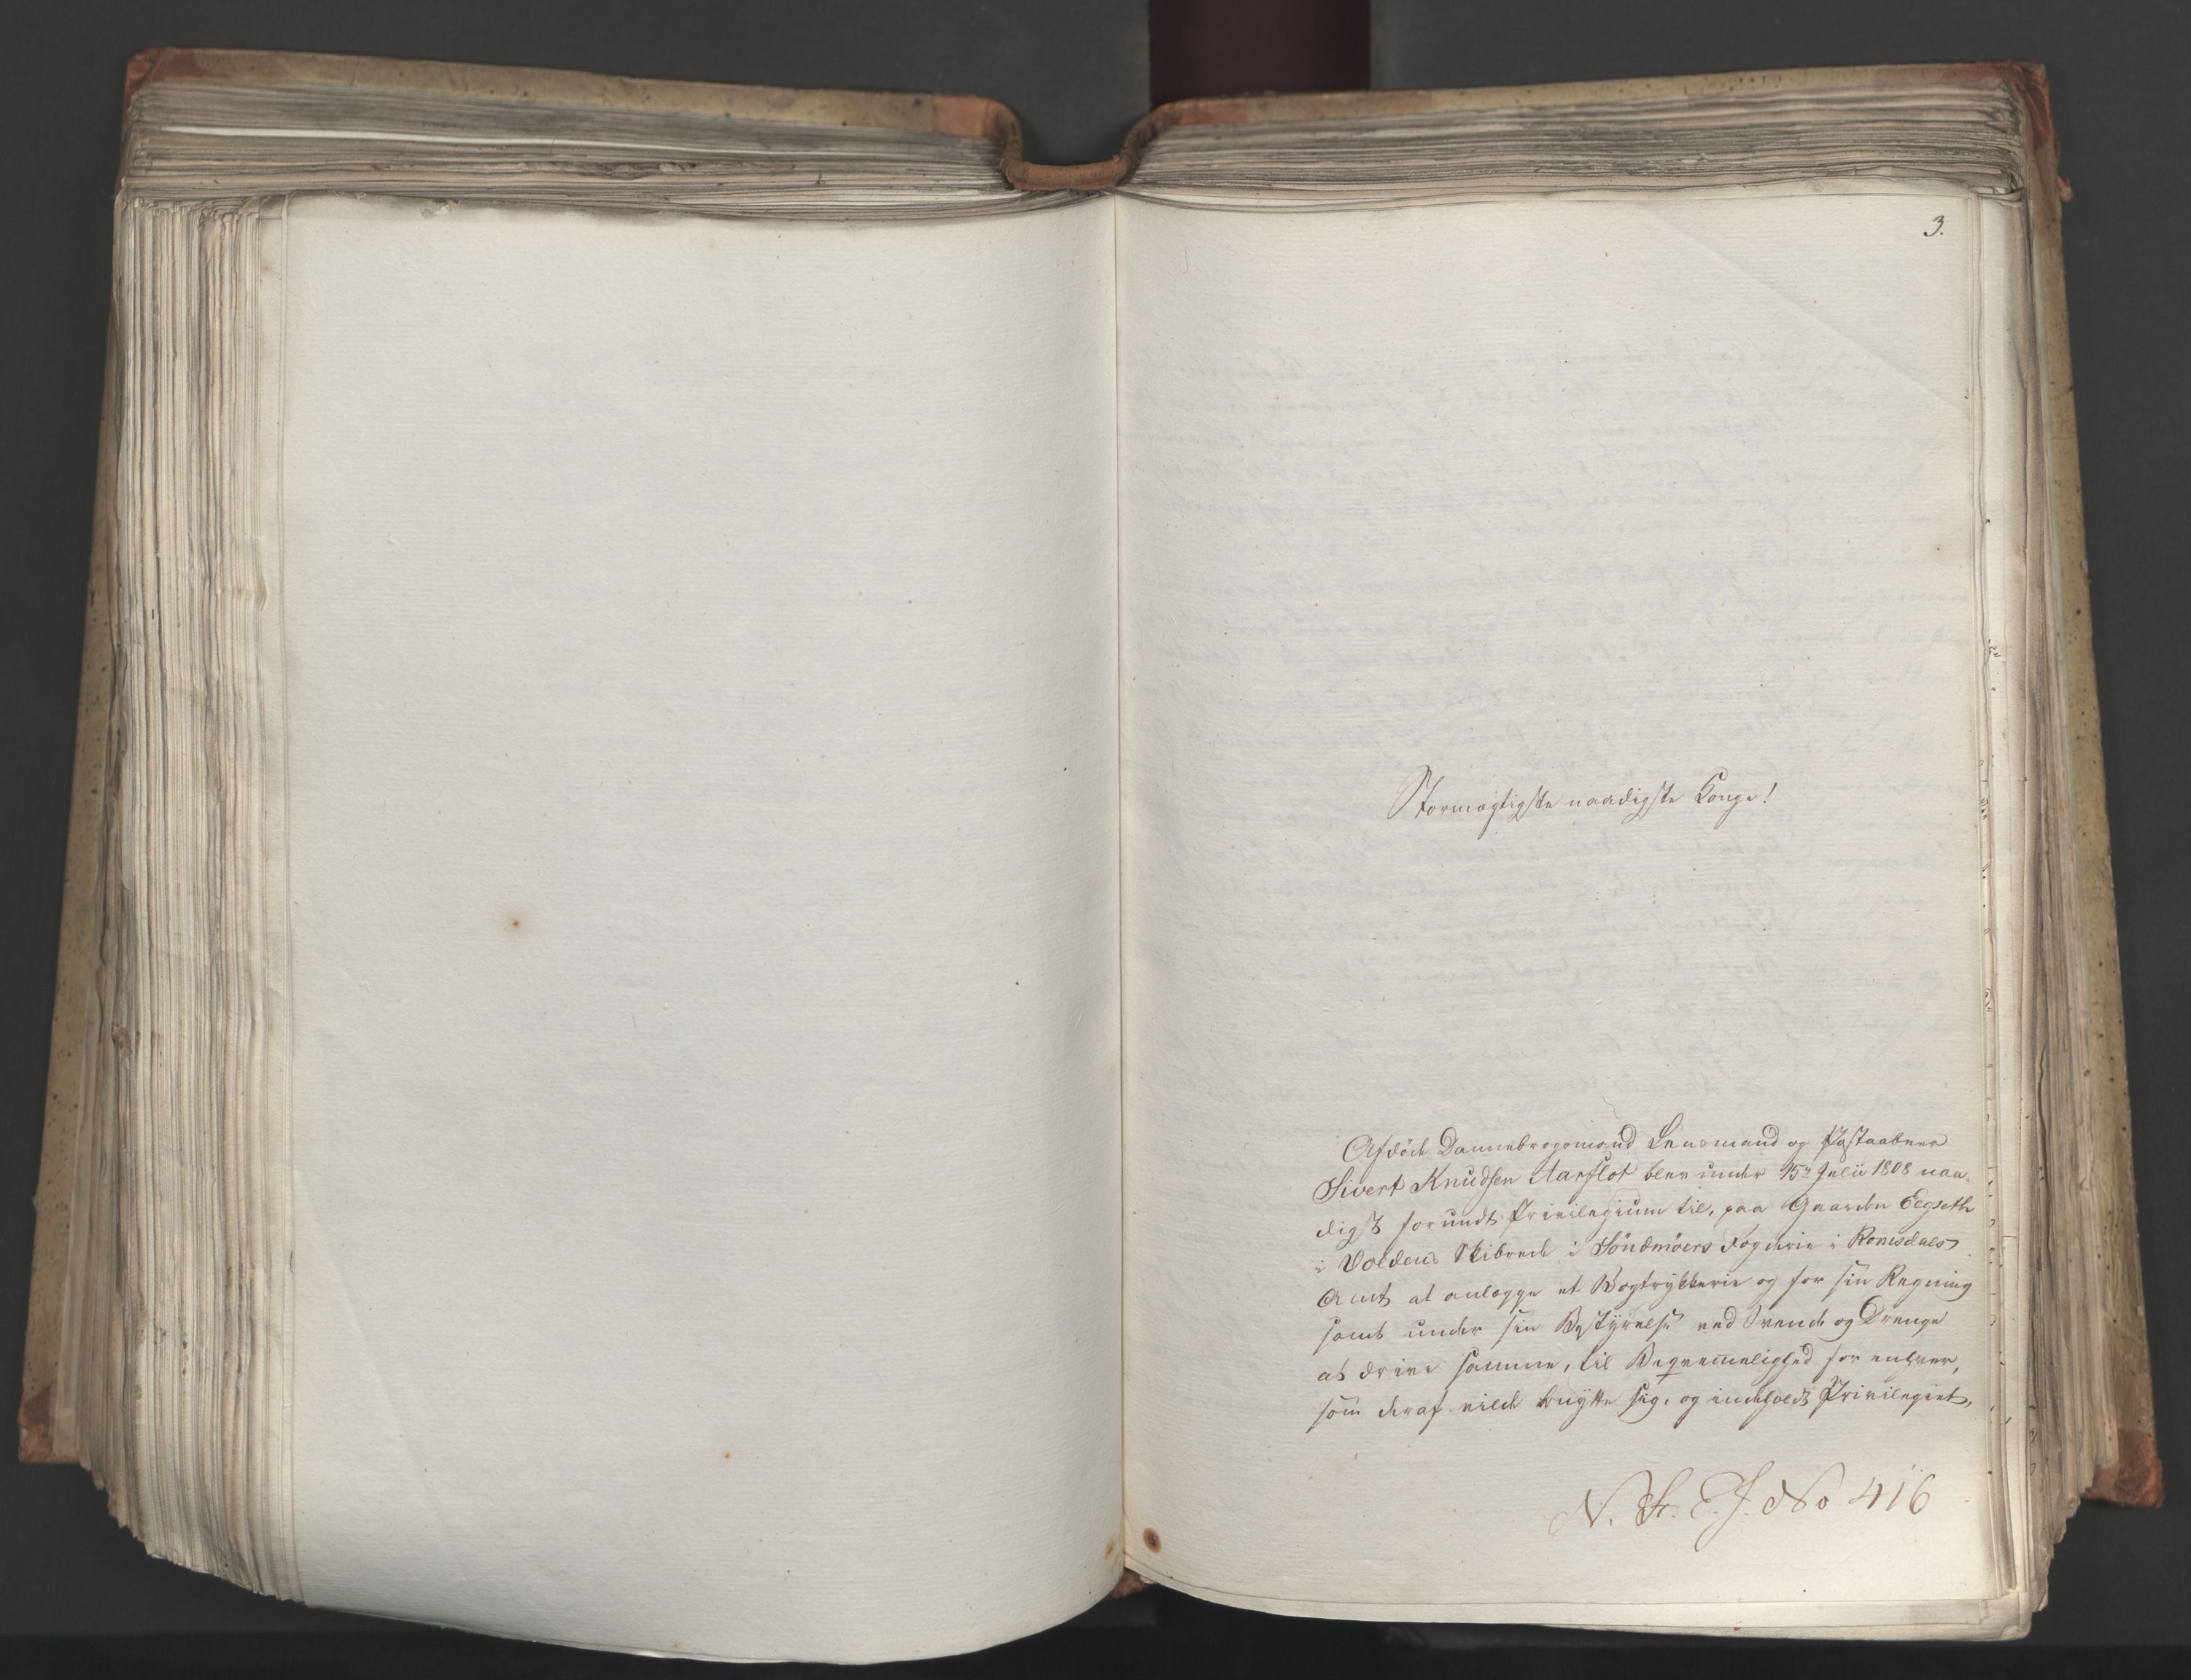 3.
Stormægtigste naadigste Konge!
Afdöde Dannebrogsmand Lensmand og Postaabner
Sivert Knudsen Aarflot blev under 15de Julii 1808 naa-
digst forundt Privilegium til, paa Gaarden Eegseth
i Voldens Skibrede i Söndmöers Fogderie i Romsdals
Amt at anlægge et Bogtrykkerie og for sin Regning
samt under sin Bestyrelse ved Svende og Drenge
at drive samme, til Beqvemmelighed for enhver,
som deraf vilde benytte sig, og indeholdt Privilegiet,
N. E. J. No 416